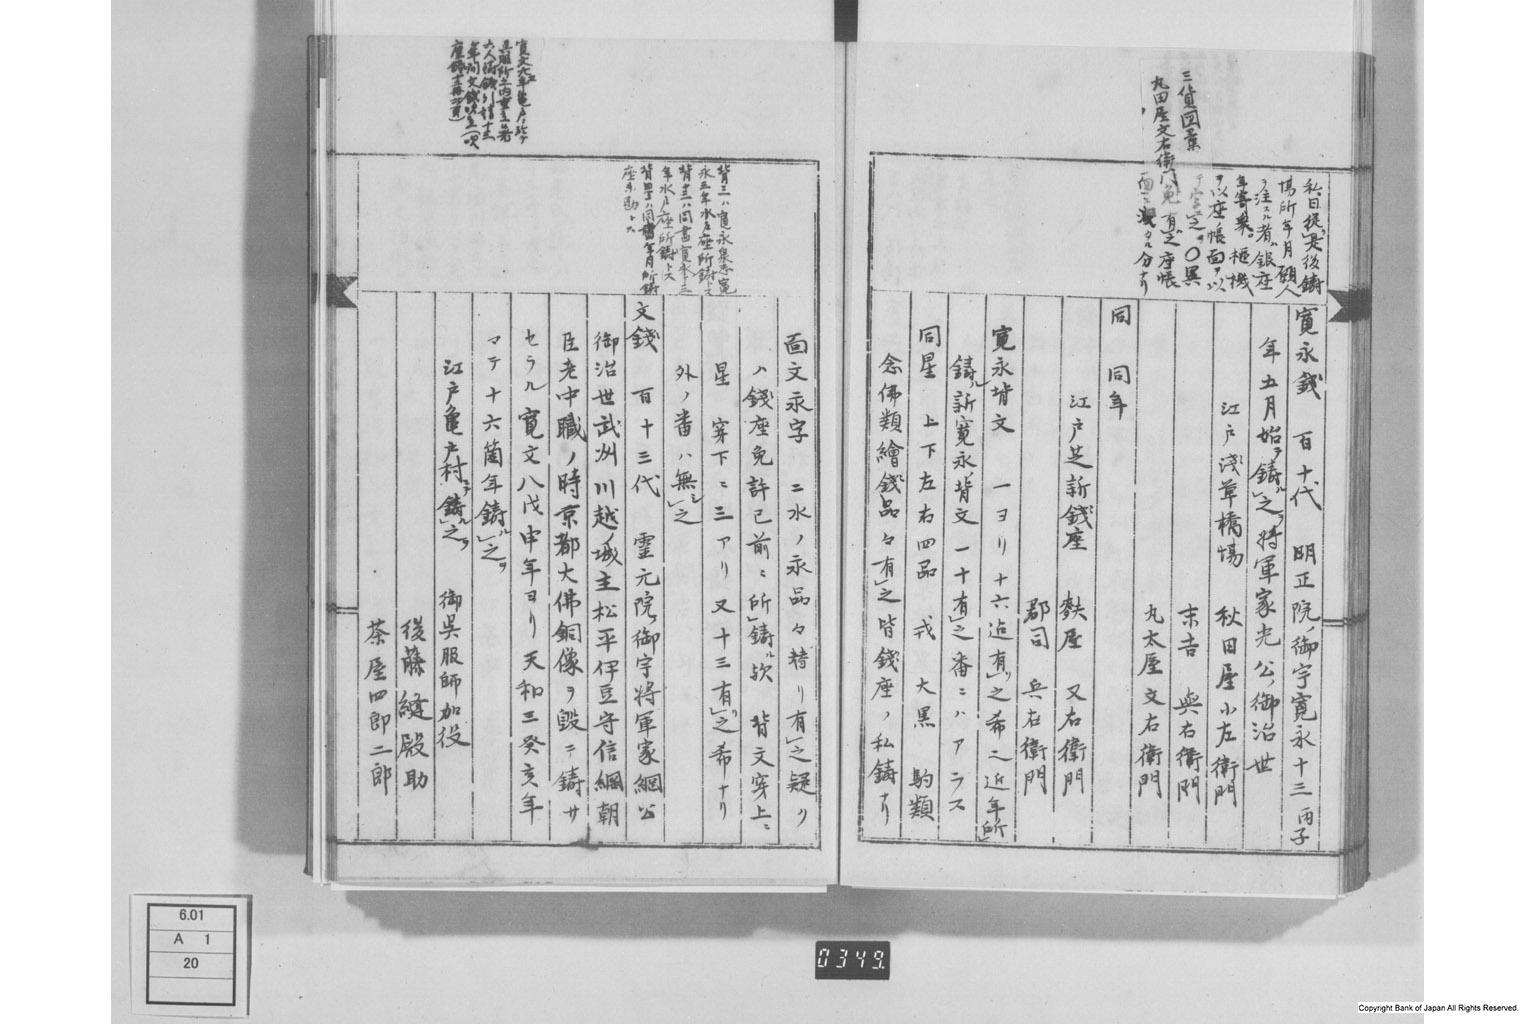 三貨図彙
丸田屋文右衛門
私曰從是後鋳
場所年月願人
ヲ注スル者ハ銀座
年寄衆ノ枢機
ヲ以座帳面ヲ以
テ定之ヲ〇異
免有之座帳
面ニ
寛永錢 百十代 明正院ノ御宇寛永十三丙子
年五月始ヲ鋳ル之ヲ将軍家光公ノ御治世
江戸浅草橋場 秋田屋小左衛門
末吉 與右衛門
丸太屋文右衛門
同 同年
江戸芝新錢座 麩屋 又右衛門
郡司 兵右衛門
寛永背文 一ヨリ十六迠有リ之希ニ近年所
鋳ル新寛永背文一十有之番ニハアラス
同星 上下左右四品 戎 大黒 駒類
念佛類繪錢品々有之皆錢座ノ私鋳ナリ
背三ハ寛永泉志寛
永五年水戸座所鋳トス
背十三ハ同書寛永十三
年水戸座所鋳トス
面文永字 二水ノ永品々替リ有之疑ラク
ハ錢座免許已前ニ所鋳ル欤 背文穿上ニ
星 穿下ニ三アリ又十三有リ之希ナリ
外ノ番ハ無シ之
文錢 百十三代 霊元院ノ御宇将軍家綱公
御治世武州川越ノ城主松平伊豆守信綱朝
臣老中職ノ時京都大佛銅像ヲ毀テ鋳サ
セラル寛文八戊申年ヨリ天和三癸亥年
マテ十六箇年鋳ル之ヲ
江戸亀戸村ニテ鋳ル之ヲ 御呉服師加役
後藤縫殿助
茶屋四郎二郎
6.01
A 1
20
0349.
Copyright Bank of Japan All Rights Reserved.